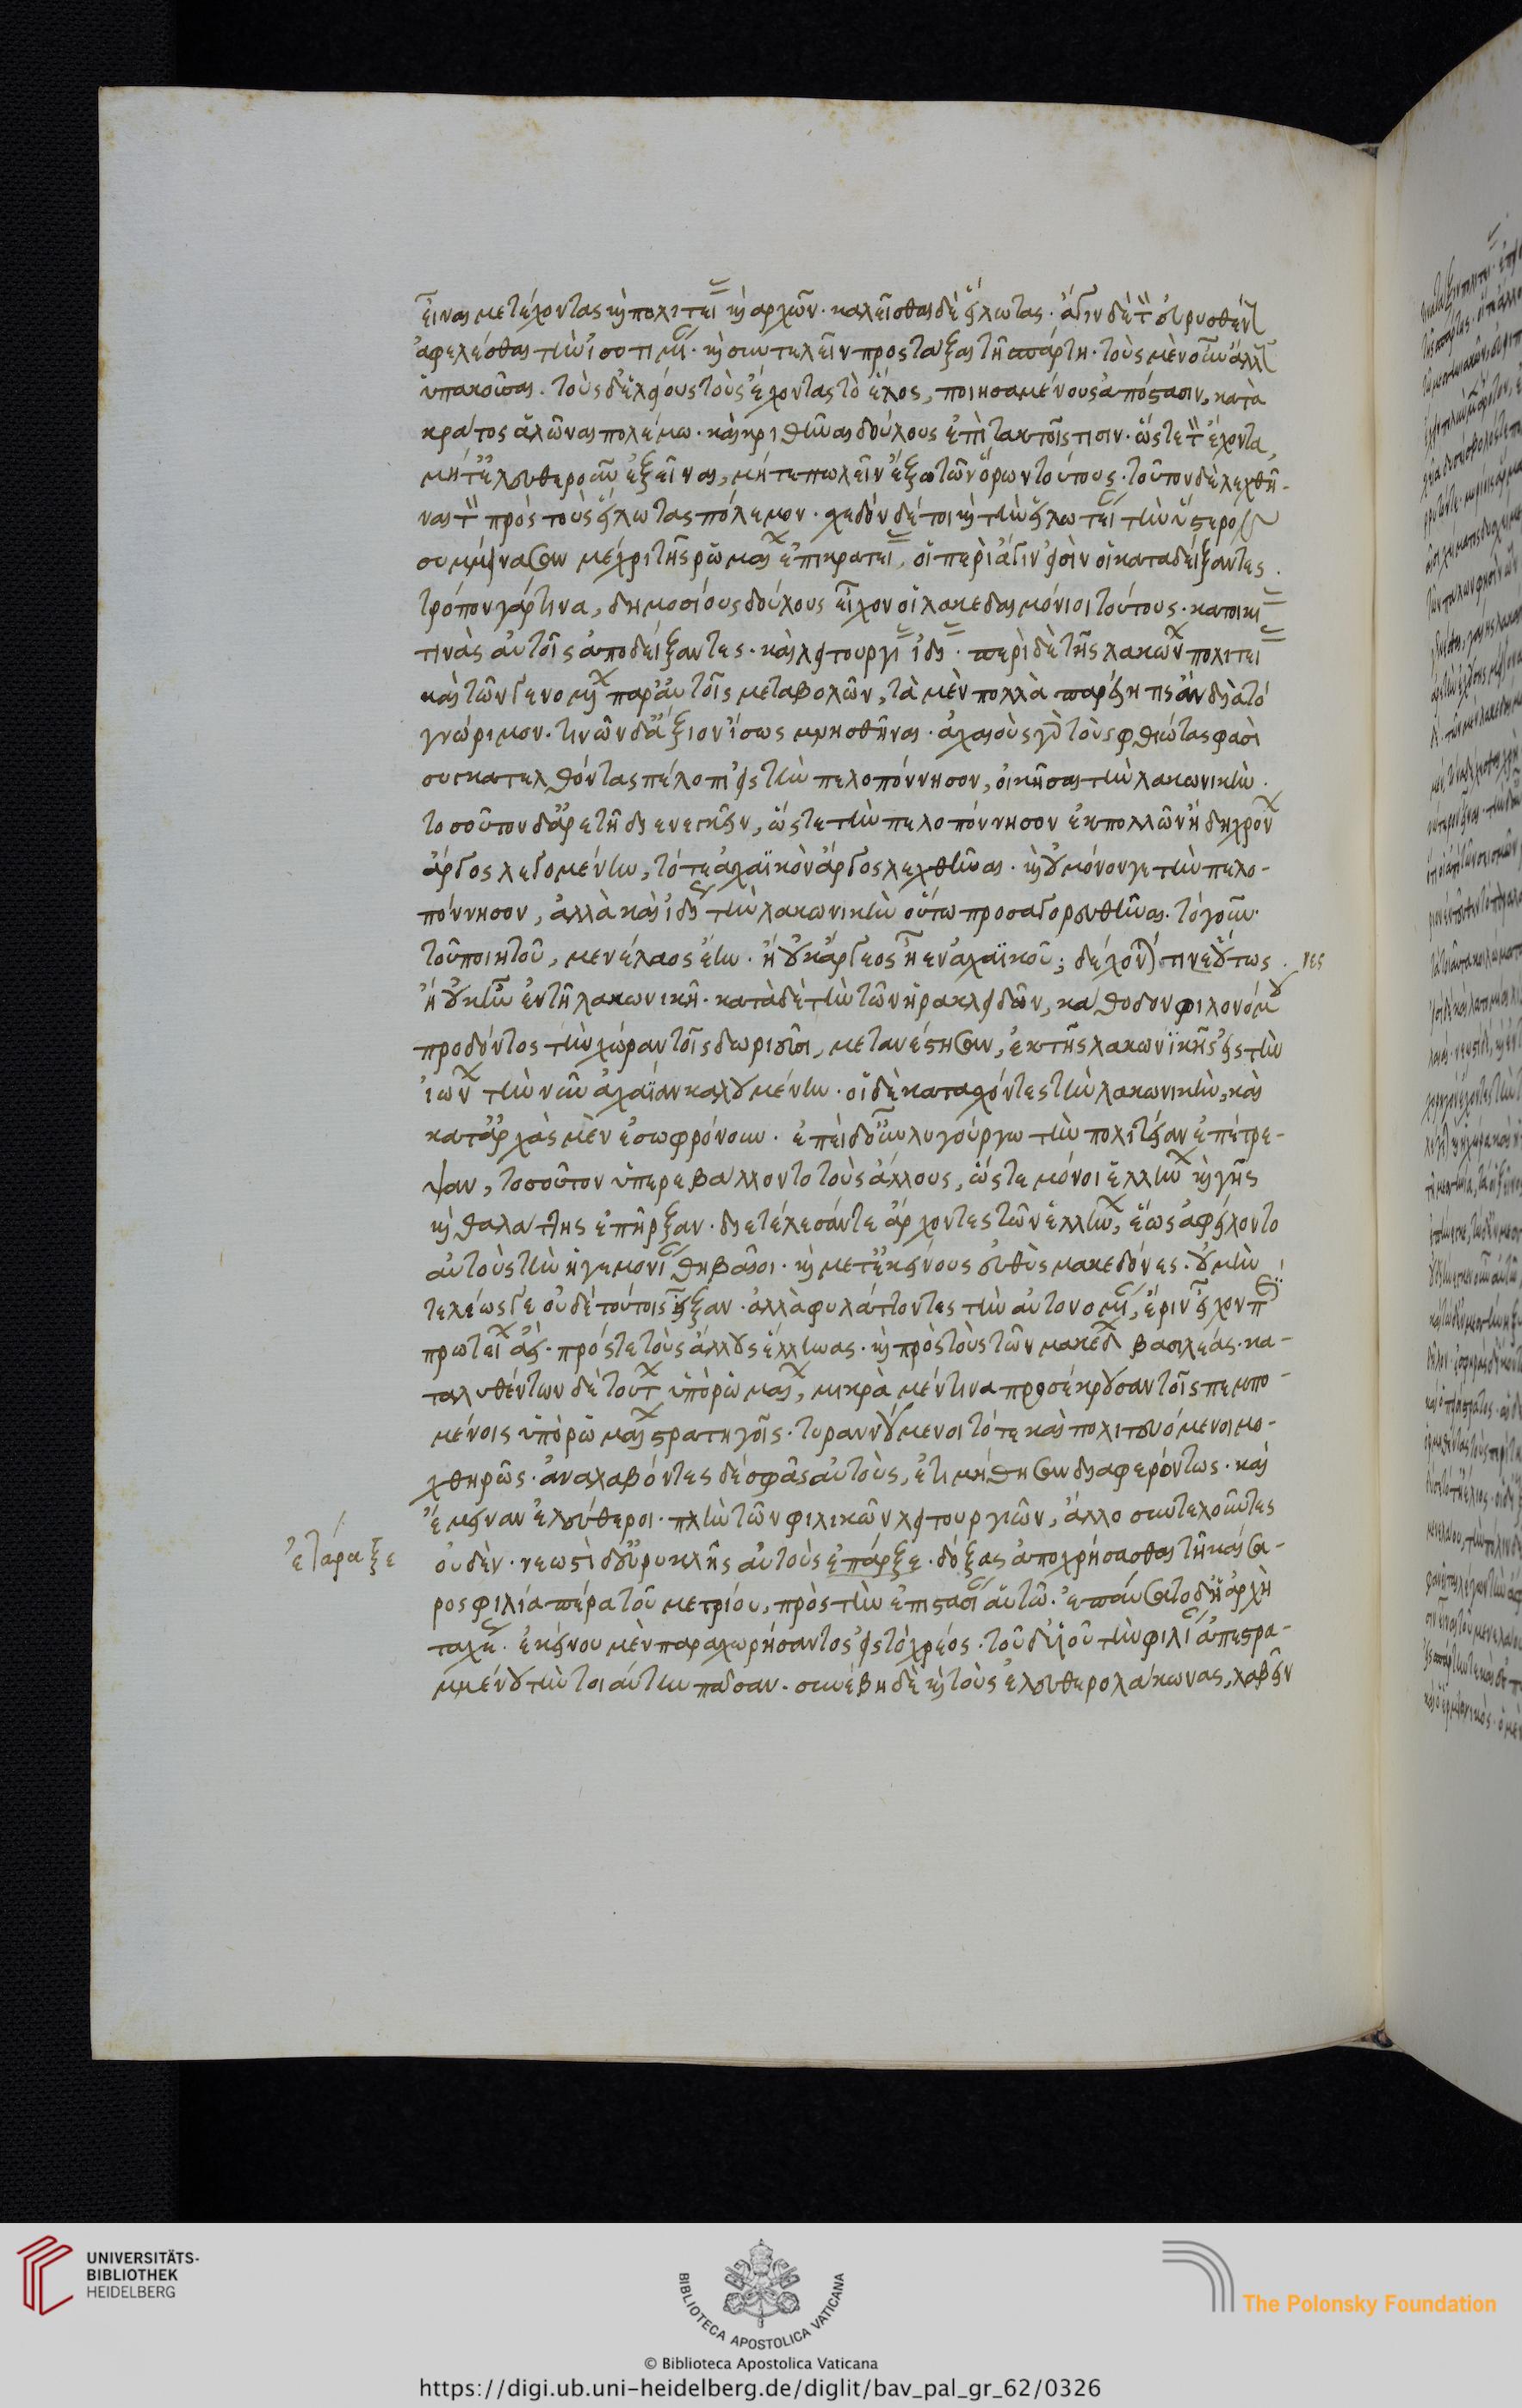 εἶναι μετέχοντας καὶ πολιτεί καὶ ἀρχῶν. καλεῖσθαι δὲ εἵλωτας. ἄγιν δὲ τ εὐρυσθέν
ἀφελέσθαι τὴν ἰσοτιμί. καὶ συντελεῖν προστάξαι τῇ σπάρτῃ. τοὺς μὲν οὖν ἄλλ
ὑπακοῦσαι. τοὺς δ' ἑλείους τοὺς ἔχοντας τὸ ἕλος, ποιησαμένους ἀπόστασιν, κατὰ
κράτος ἁλῶναι πολέμω. καὶ κριθῆναι δούλους ἐπὶ τακτοῖς τισιν. ὥστε τ ἔχοντα,
μήτ' ἐλευθεροῦν ἐξεῖναι, μήτε πωλεῖν ἔξω τῶν ὅρων τούτους. τοῦτον δὲ λεχθῆ-
ναι τ πρὸς τοὺς εἵλωτας πόλεμον. σχεδὸν δέ τοι καὶ τὴν εἱλωτεί τὴν ὕστερο
συμμείνασαν μέχρι τῆς ῥωμαί ἐπικρατεί, οἱ περὶ ἄγιν εἰσὶν οἱ καταδείξαντες.
τρόπον γάρ τινα, δημοσίους δούλους εἶχον οἱ λακεδαιμόνιοι τούτους. κατοικί
τινὰς αὐτοῖς ἀποδείξαντες. καὶ λειτουργί ἰδί. περὶ δὲ τῆς λακών πολιτεί
καὶ τῶν γενομ παρ' αὐτοῖς μεταβολῶν, τὰ μὲν πολλὰ παρείη τις ἂν διὰ τὸ
γνώριμον. τινῶν δ' ἄξιον ἴσως μνησθῆναι. ἀχαιοὺς γὰρ τοὺς φθιώτας φασὶ
συγκατελθόντας πέλοπι εἰς τὴν πελοπόννησον, οἰκῆσαι τὴν λακωνικὴν.
τοσοῦτον δ' ἀρετῇ διενεγκεῖν, ὥστε τὴν πελοπόννησον ἐκ πολλῶν ἤδη χρον
ἄργος λεγομένην, τότε ἀχαϊκὸν ἄργος λεχθῆναι. καὶ οὐ μόνον γε τὴν πελο-
πόννησον, ἀλλὰ καὶ ἰδί τὴν λακωνικὴν οὕτω προσαγορευθῆναι. τὸ γοῦν
τοῦ ποιητοῦ, μενέλαος ἔην. ἢ οὐκ ἄργεος ἦεν ἀχαϊκοῦ; δέχονται τινὲ οὕτως. νες
ἢ οὐκ ἦν ἐν τῇ λακωνικῇ. κατὰ δὲ τὴν τῶν ἡρακλειδῶν, κάθοδον φιλονόμου
προδόντος τὴν χώραν τοῖς δωριεῦσι, μετανέστησαν, ἐκ τῆς λακωνϊκῆς εἰς τὴν
ἰών τὴν νῦν ἀχαϊαν καλουμένην. οἱ δὲ κατασχόντες τὴν λακωνικὴν, καὶ
κατ' ἀρχὰς μὲν ἐσωφρόνουν. ἐπεὶ δ' οὖν λυγούργω τὴν πολιτείαν ἐπέτρε-
ψαν, τοσοῦτον ὑπερεβάλλοντο τοὺς ἄλλους, ὥστε μόνοι ἑλλήν καὶ γῆς
καὶ θαλάττης ἐπῆρξαν. διετέλεσάν τε ἄρχοντες τῶν ἑλλήν, ἕως ἀφείλοντο
αὐτοὺς τὴν ἡγεμονί θηβαῖοι. καὶ μετ' ἐκείνους εὐθὺς μακεδόνες. οὐ μὴν
τελέως γε οὐδὲ τούτοις εἶξαν. ἀλλὰ φυλάττοντες τὴν αὐτονομί, ἔριν εἶχον π
πρωτεί ἀεί. πρός τε τοὺς ἄλλους ἕλληνας. καὶ πρὸς τοὺς τῶν μακεδ βασιλέας. κα-
ταλυθέντων δὲ τούτ ὑπὸ ῥωμαί, μικρὰ μέν τινα προσέκρουσαν τοῖς πεμπο-
μένοις ὑπὸ ῥωμαί στρατηγοῖς. τυραννούμενοι τότε καὶ πολιτευόμενοι μο-
χθηρῶς. ἀναλαβόντες δὲ σφᾶς αὐτοὺς, ἐτιμήθησαν διαφερόντως. καὶ
ἔμειναν ἐλεύθεροι. πλὴν τῶν φιλικῶν λειτουργιῶν, ἄλλο συντελοῦντες
ἐτάραξε οὐδὲν. νεωστὶ δ' εὐρυκλῆς αὐτοὺς ἐπάρξε. δόξας ἀποχρήσασθαι τῇ καίσα-
ρος φιλία πέρα τοῦ μετρίου, πρὸς τὴν ἐπιστασί αὐτῶ. ἐπαύσατο δ' ἡ ἀρχὴ
ταχέ. ἐκείνου μὲν παραχωρήσαντος εἰς τὸ χρεός. τοῦ δ' υἱοῦ τὴν φιλί ἀπεστρα-
μμένου τὴν τοιαύτην πᾶσαν. συνέβη δὲ καὶ τοὺς ἐλευθερολάκωνας, λαβεῖν
UNIVERSITÄTS-
BIBLIOTHEK
HEIDELBERG
BIBLIOTECA APOSTOLICA VATICANA
The Polonsky Foundation
© Biblioteca Apostolica Vaticana
https://digi.ub.uni-heidelberg.de/diglit/bav_pal_gr_62/0326